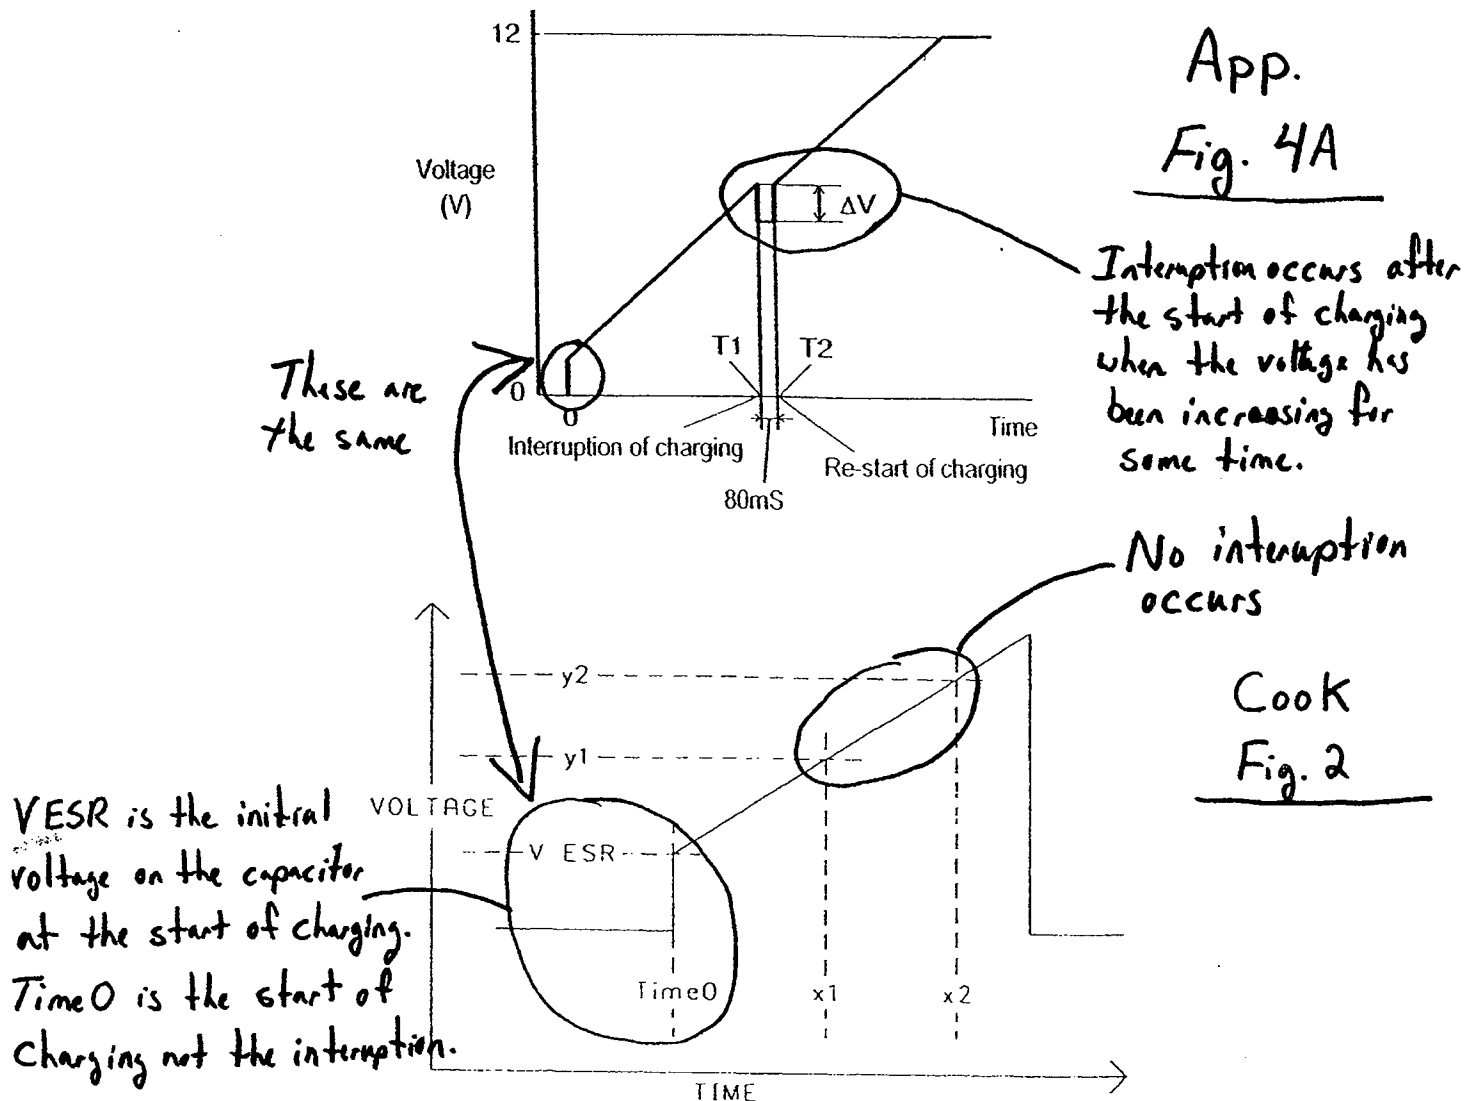 12
App.
Fig. 4A
Voltage
(V)
ΔV
Interuption occurs after
the start of charging
when the voltage has
been increasing for
some time.
These are
the same
T1
T2
0
0
Time
Interruption of charging
Re-start of charging
80mS
No interuption
occurs
y2
Cook
Fig. 2
y1
VOLTAGE
V ESR
VESR is the initial
voltage on the capacitor
at the start of charging.
Time0 is the start of
Charging not the interuption.
Time0
x1
x2
TIME